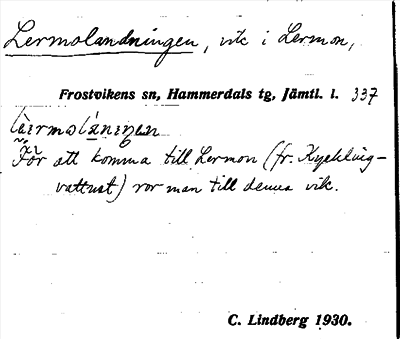 Lermolandningen, vik i Lermon,
Frostvikens sn, Hammerdals tg, Jämtl. l. 337
För att komma till Lermon (fr. Kycklingvattnet) ror man till denna vik.
C. Lindberg 1930.